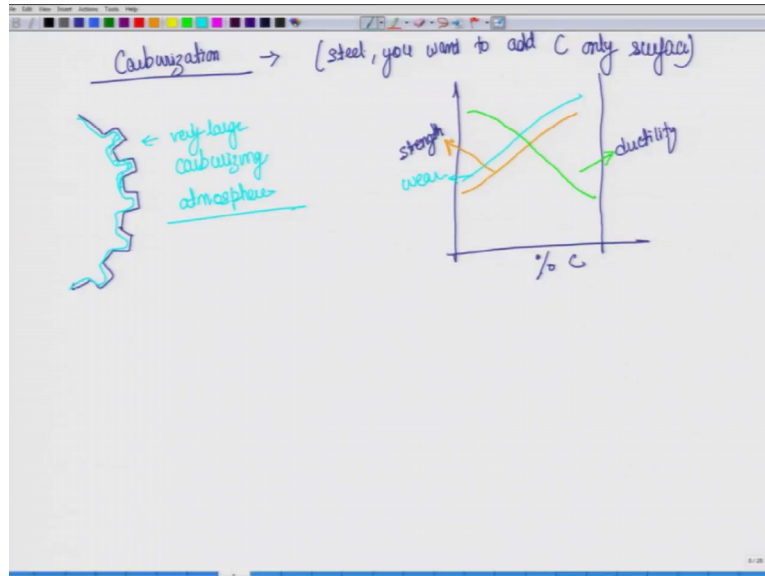 File Edit View Insert Actions Tools Help
Carburization → (steel, you want to add C only surface)
← very large
carburizing
atmosphere
strength
wear
ductility
% C